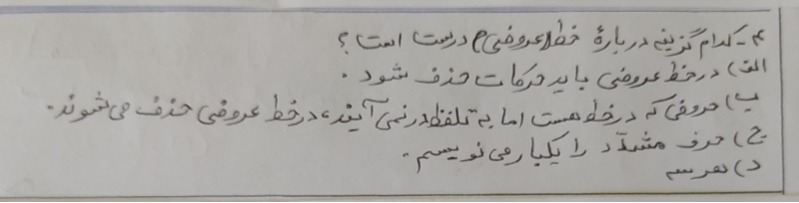 ۴- کدام گزینه دربارهٔ خط (عروضی) درست است؟
الف) در خط عروضی باید حرکات حذف شود.
ب) حروفی که در خط هست اما به تلفظ در نمی آیند، در خط عروضی حذف می شوند.
ج) حرف مشدّد را یکبار می نویسم.
د) هر سه